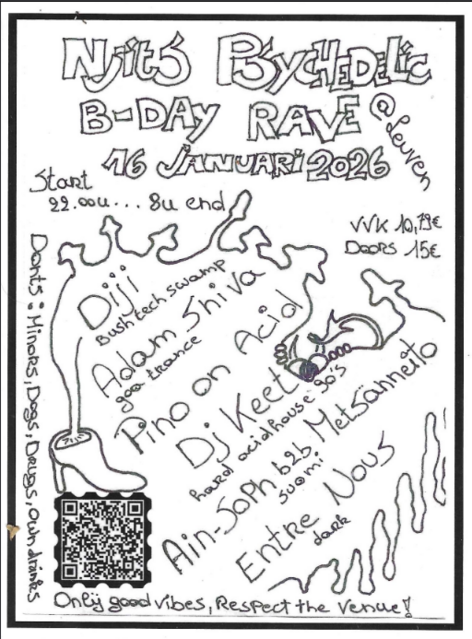 Njits Psychedelic
B-Day Rave @Leuven
16 Januari 2026
Start
22.00u... 8u end
VVK 10,79€
Doors 15€
Donts: Minors, Dogs, Drugs, own drinks
Diji
Bush tech swamp
Adam Shiva
goa trance
Pino on Acid
Dj Keet
hard acidhouse 90's
Ain-Soph b2b Metsänneito
suomi
Entre Nous
dark
Only good vibes, Respect the venue!